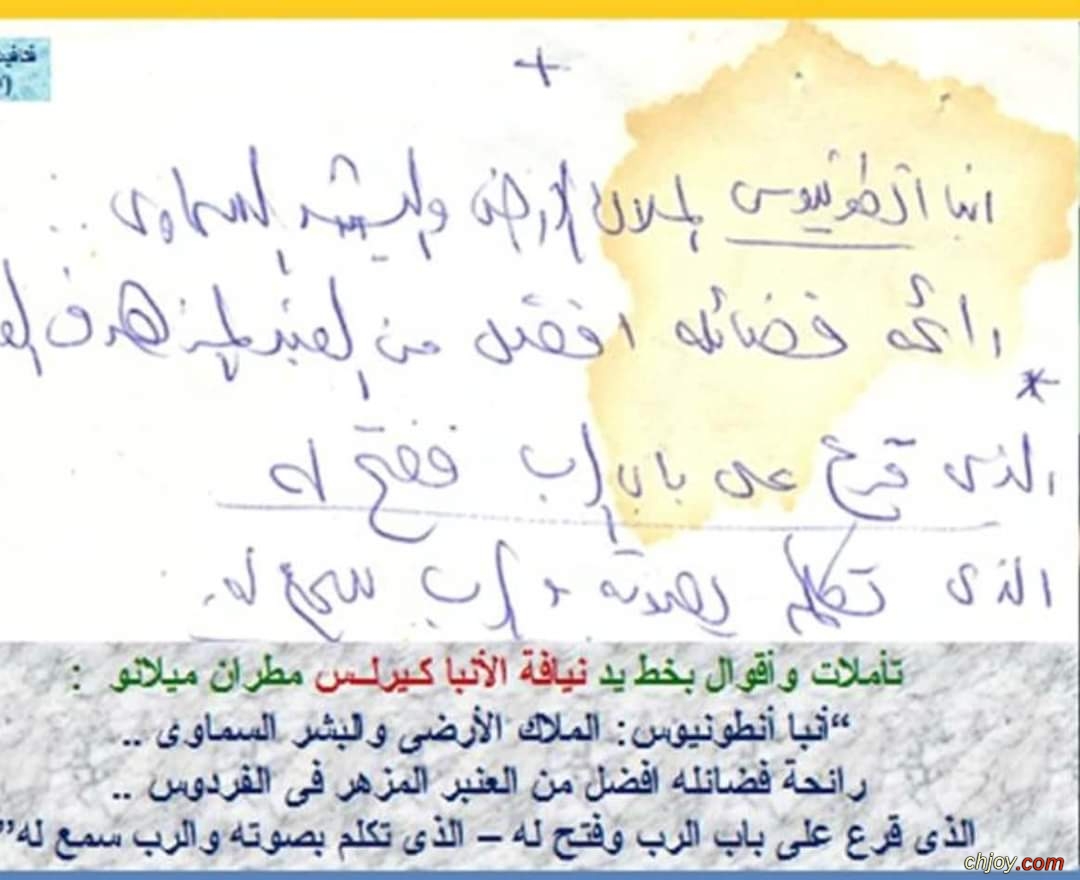 +
انبا انطونيوس الملاك الأرضى والبشر السماوى ..
رائحة فضائله افضل من العنبر المزهر فى
*
الذى قرع على باب الرب ففتح له
الذى تكلم بصوته والرب سمع له.
تأملات وأقوال بخط يد نيافة الأنبا كيرلس مطران ميلانو :
“أنبا أنطونيوس: الملاك الأرضى والبشر السماوى ..
رائحة فضائله افضل من العنبر المزهر فى الفردوس ..
الذى قرع على باب الرب وفتح له – الذى تكلم بصوته والرب سمع له”
chjoy.com